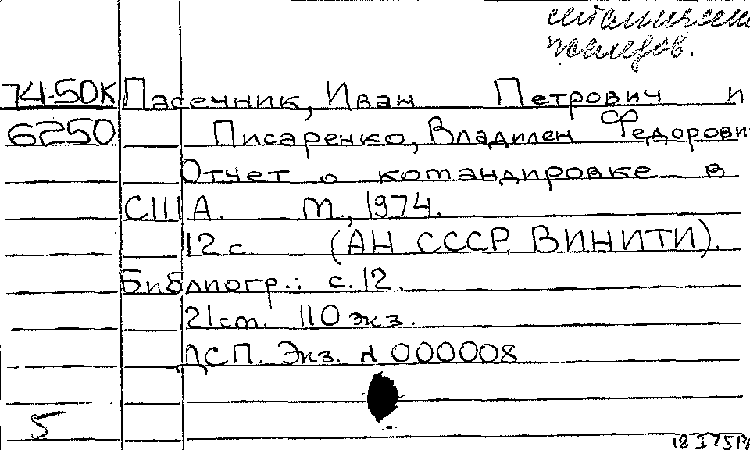 74-50К Пасечник, Иван Петрович и
6250 Писаренко, Владилен Федорови
Отчет о командировке в
США. М., 1974.
12 с. (АН СССР ВИНИТИ).
Библиогр.: с. 12.
21 см. 110 экз.
ДСП. Экз. N 000008
5